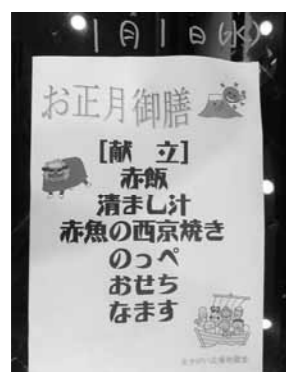 1月1日(水)
お正月御膳
[献 立]
赤飯
清まし汁
赤魚の西京焼き
のっぺ
おせち
なます